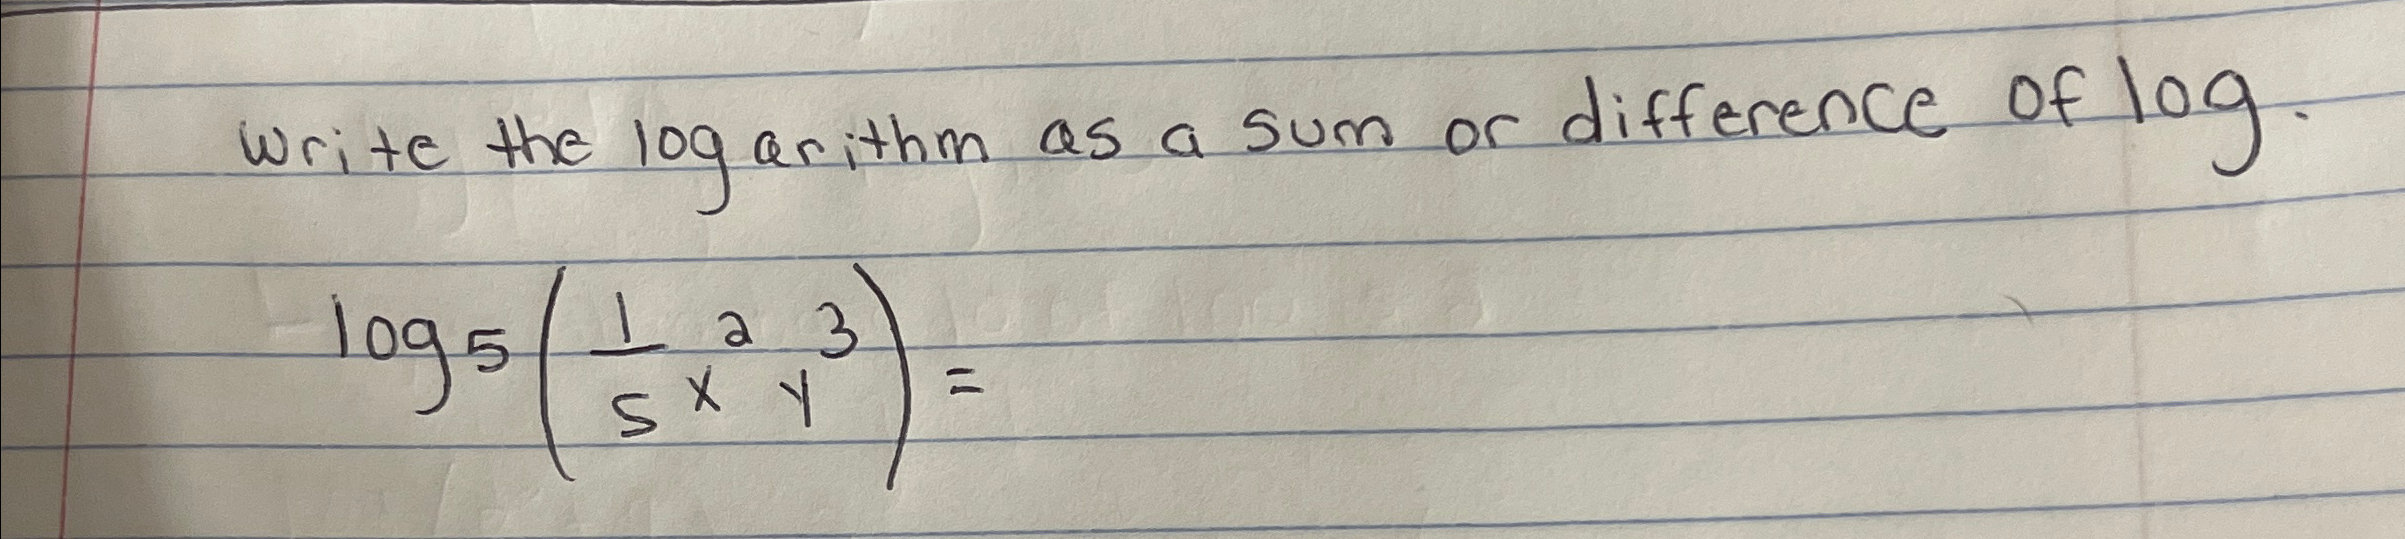 write the logarithm as a sum or difference of log.
log₅(1/5 x² y³) =